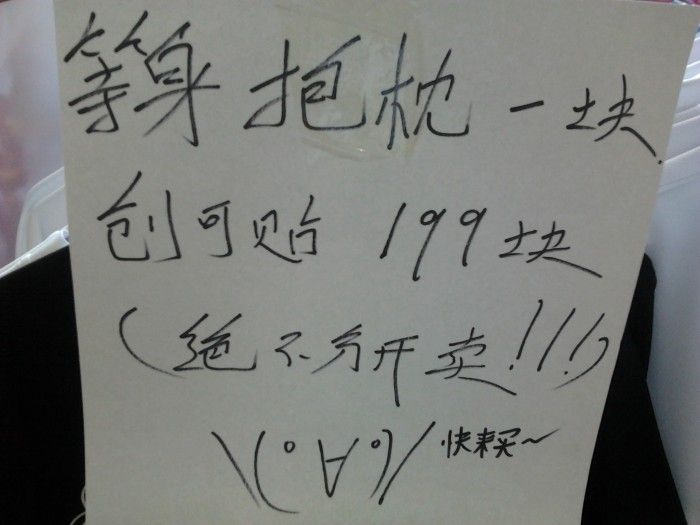 等身抱枕一块
创可贴 199块
(绝不分开卖!!!)
\(°∀°)/ 快来买~